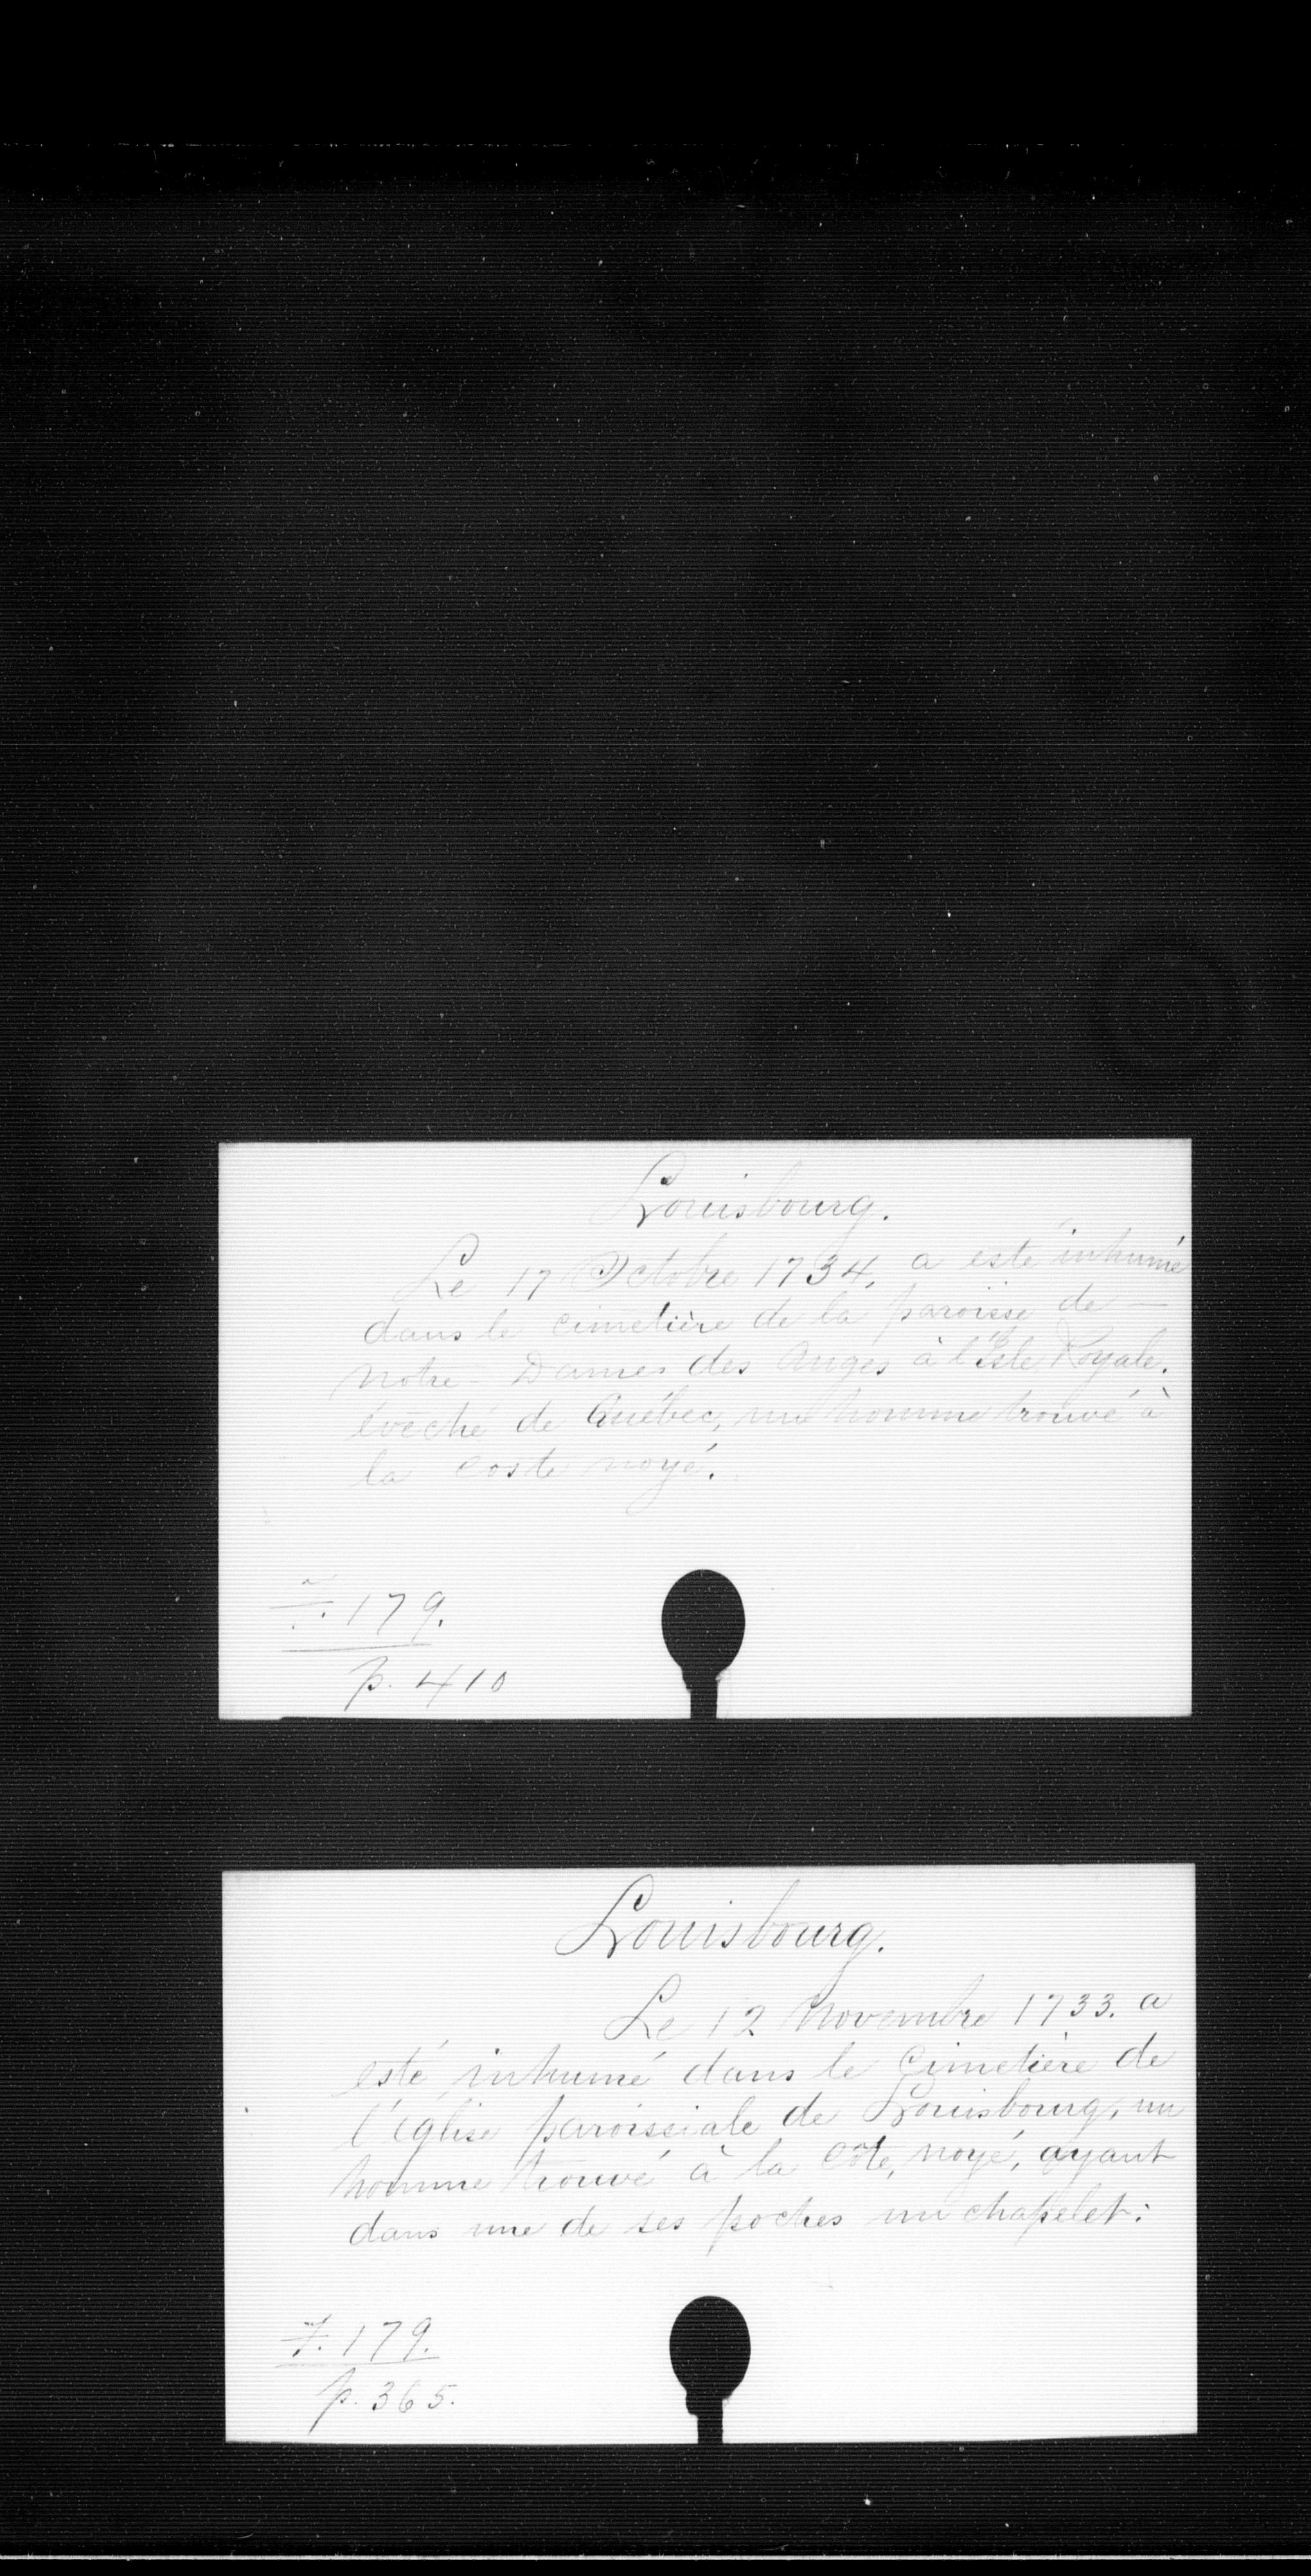 Louisbourg.
Le 17 Octobre 1734, a esté inhumé
dans le cimetière de la paroisse de —
Notre-Dames des Anges à l'Isle Royale.
évêché de Québec, un homme trouvé à
la coste noyé.
179.
p. 410
Louisbourg.
Le 12 Novembre 1733. a
esté inhumé dans le Cimetière de
l'église paroissiale de Louisbourg, un
homme trouvé à la côte, noyé, ayant
dans une de ses poches un chapelet:
7. 179.
p. 365.